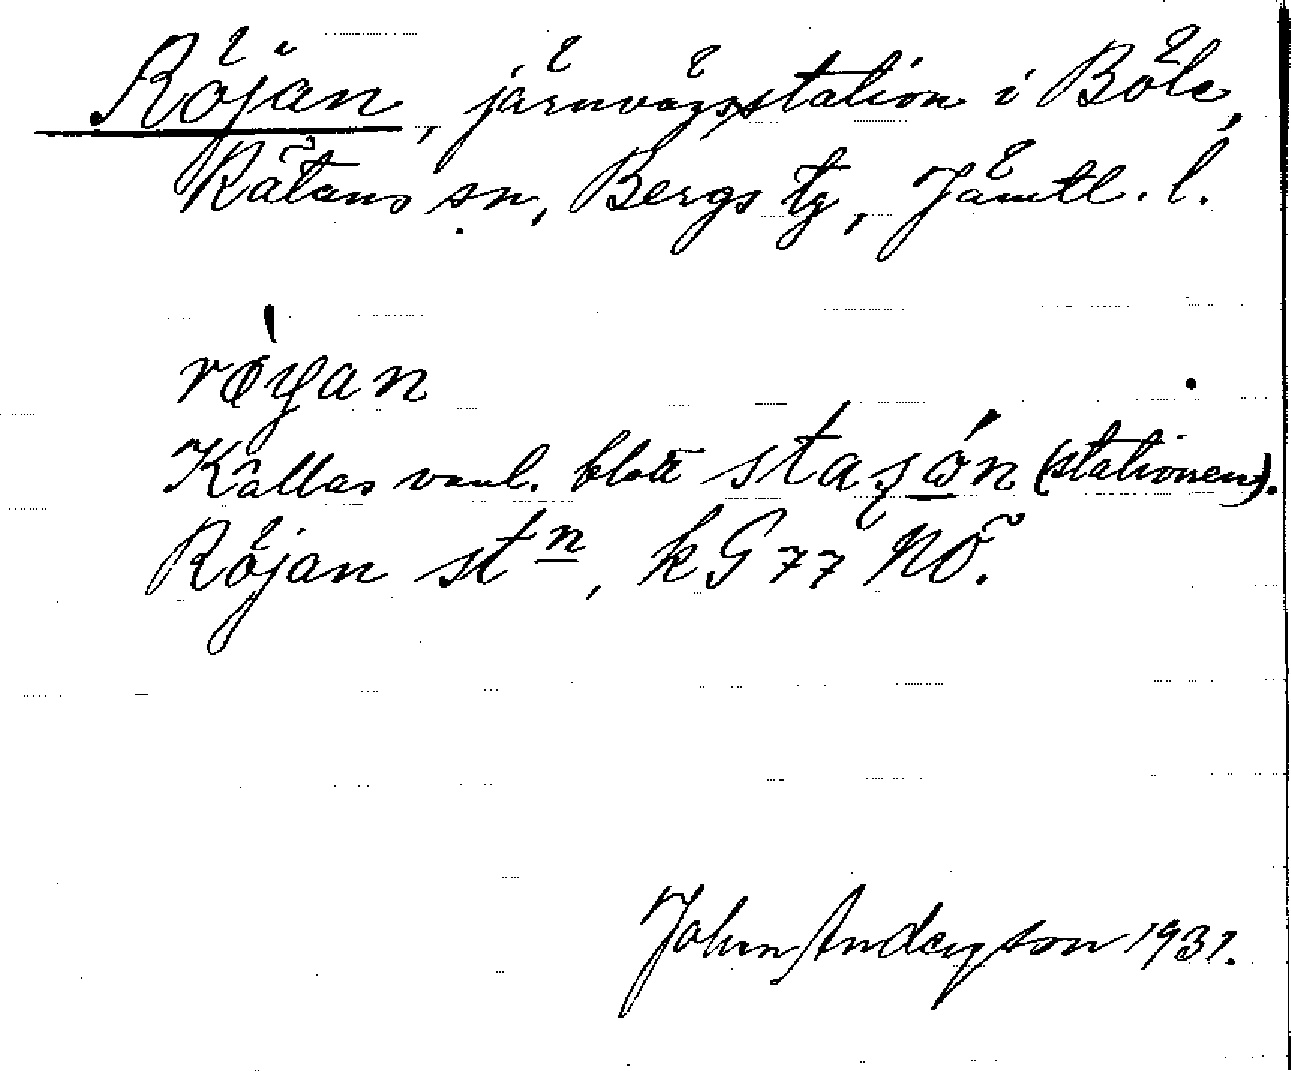 Röjan, järnvägsstation i Böle,
Rätans sn, Bergs tg, Jämtl. l.
røyan
Kallas vanl. blott stasón (stationen).
Röjan stn, k G 77 NÖ.
John Anderson 1931.